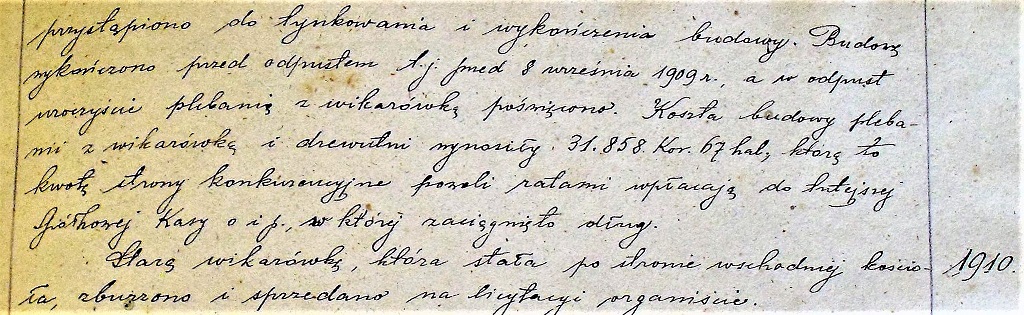 przystąpiono do tynkowania i wykończenia budowy. Budowę
wykończono przed odpustem t.j. przed 8 września 1909 r., a w odpust
uroczyście plebanię z wikarówką poświęcono. Koszta budowy pleba-
nii z wikarówką i drewutni wynosiły 31.858. Kor. 67 hal., którą to
kwotę strony konkurencyjne powoli ratami wpłacają do tutejszej
Spółkowej Kasy o i p., w której zaciągnięto dług.
Starą wikarówkę, która stała po stronie wschodniej kościo-
ła, zburzono i sprzedano na licytacyi organiście.
1910.